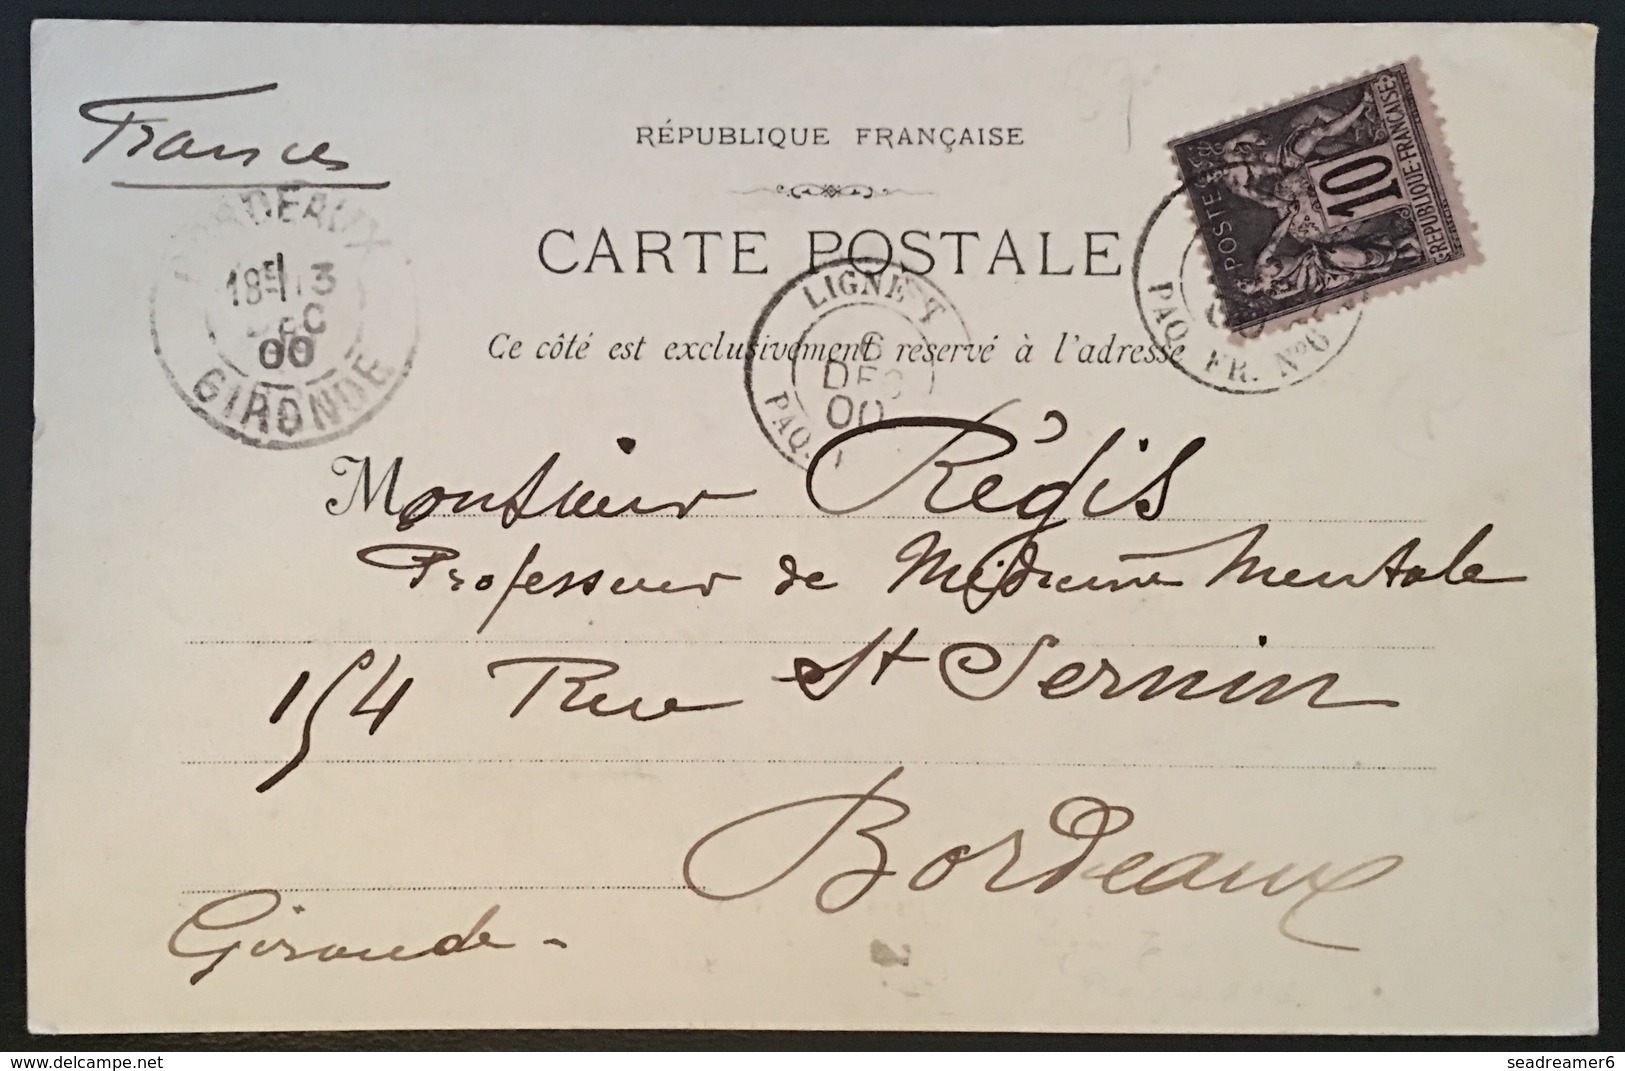 France
RÉPUBLIQUE FRANÇAISE
CARTE POSTALE
Ce côté est exclusivement réservé à l'adresse
POSTES
10
REPUBLIQUE FRANÇAISE
PAQ. FR. Nº 6
LIGNE T
6
DEC
00
PAQ.
BORDEAUX
18E 13
DEC
00
GIRONDE
Monsieur Régis
Professeur de Médecine Mentale
154 Rue St Sernin
Bordeaux
Gironde -
delcampe.net
seadreamer6